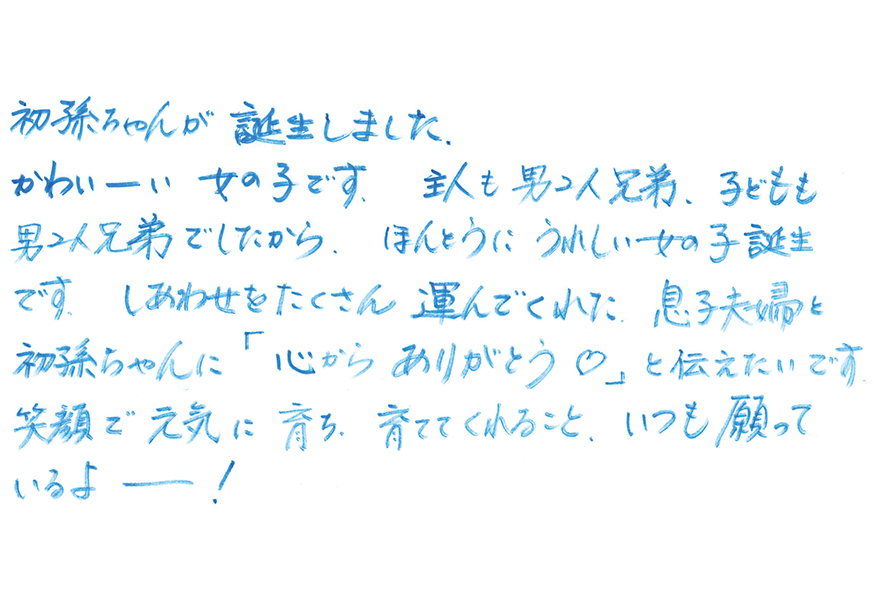 初孫ちゃんが 誕生しました.
かわいーい 女の子です. 主人も 男2人兄弟、子どもも
男2人兄弟でしたから. ほんとうに うれしい女の子誕生
です. しあわせをたくさん 運んでくれた. 息子夫婦と
初孫ちゃんに「心から ありがとう♡」と伝えたいです.
笑顔で 元気に 育ち. 育ててくれること、いつも願って
いるよ ー!